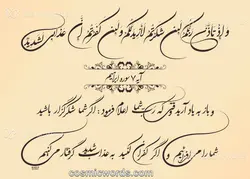 وإذ تأذن ربكم لئن شكرتم لأزيدنكم ولئن كفرتم إن عذابي لشديد
آیه ۷ سوره ابراهیم
و باز به یاد آرید وقتی که اعلام فرمود: اگر شما شکرگزار باشید
شما را می افزاییم و اگر کفران کنید به عذاب شدید گرفتار می کنیم
www.cosmicwords.com